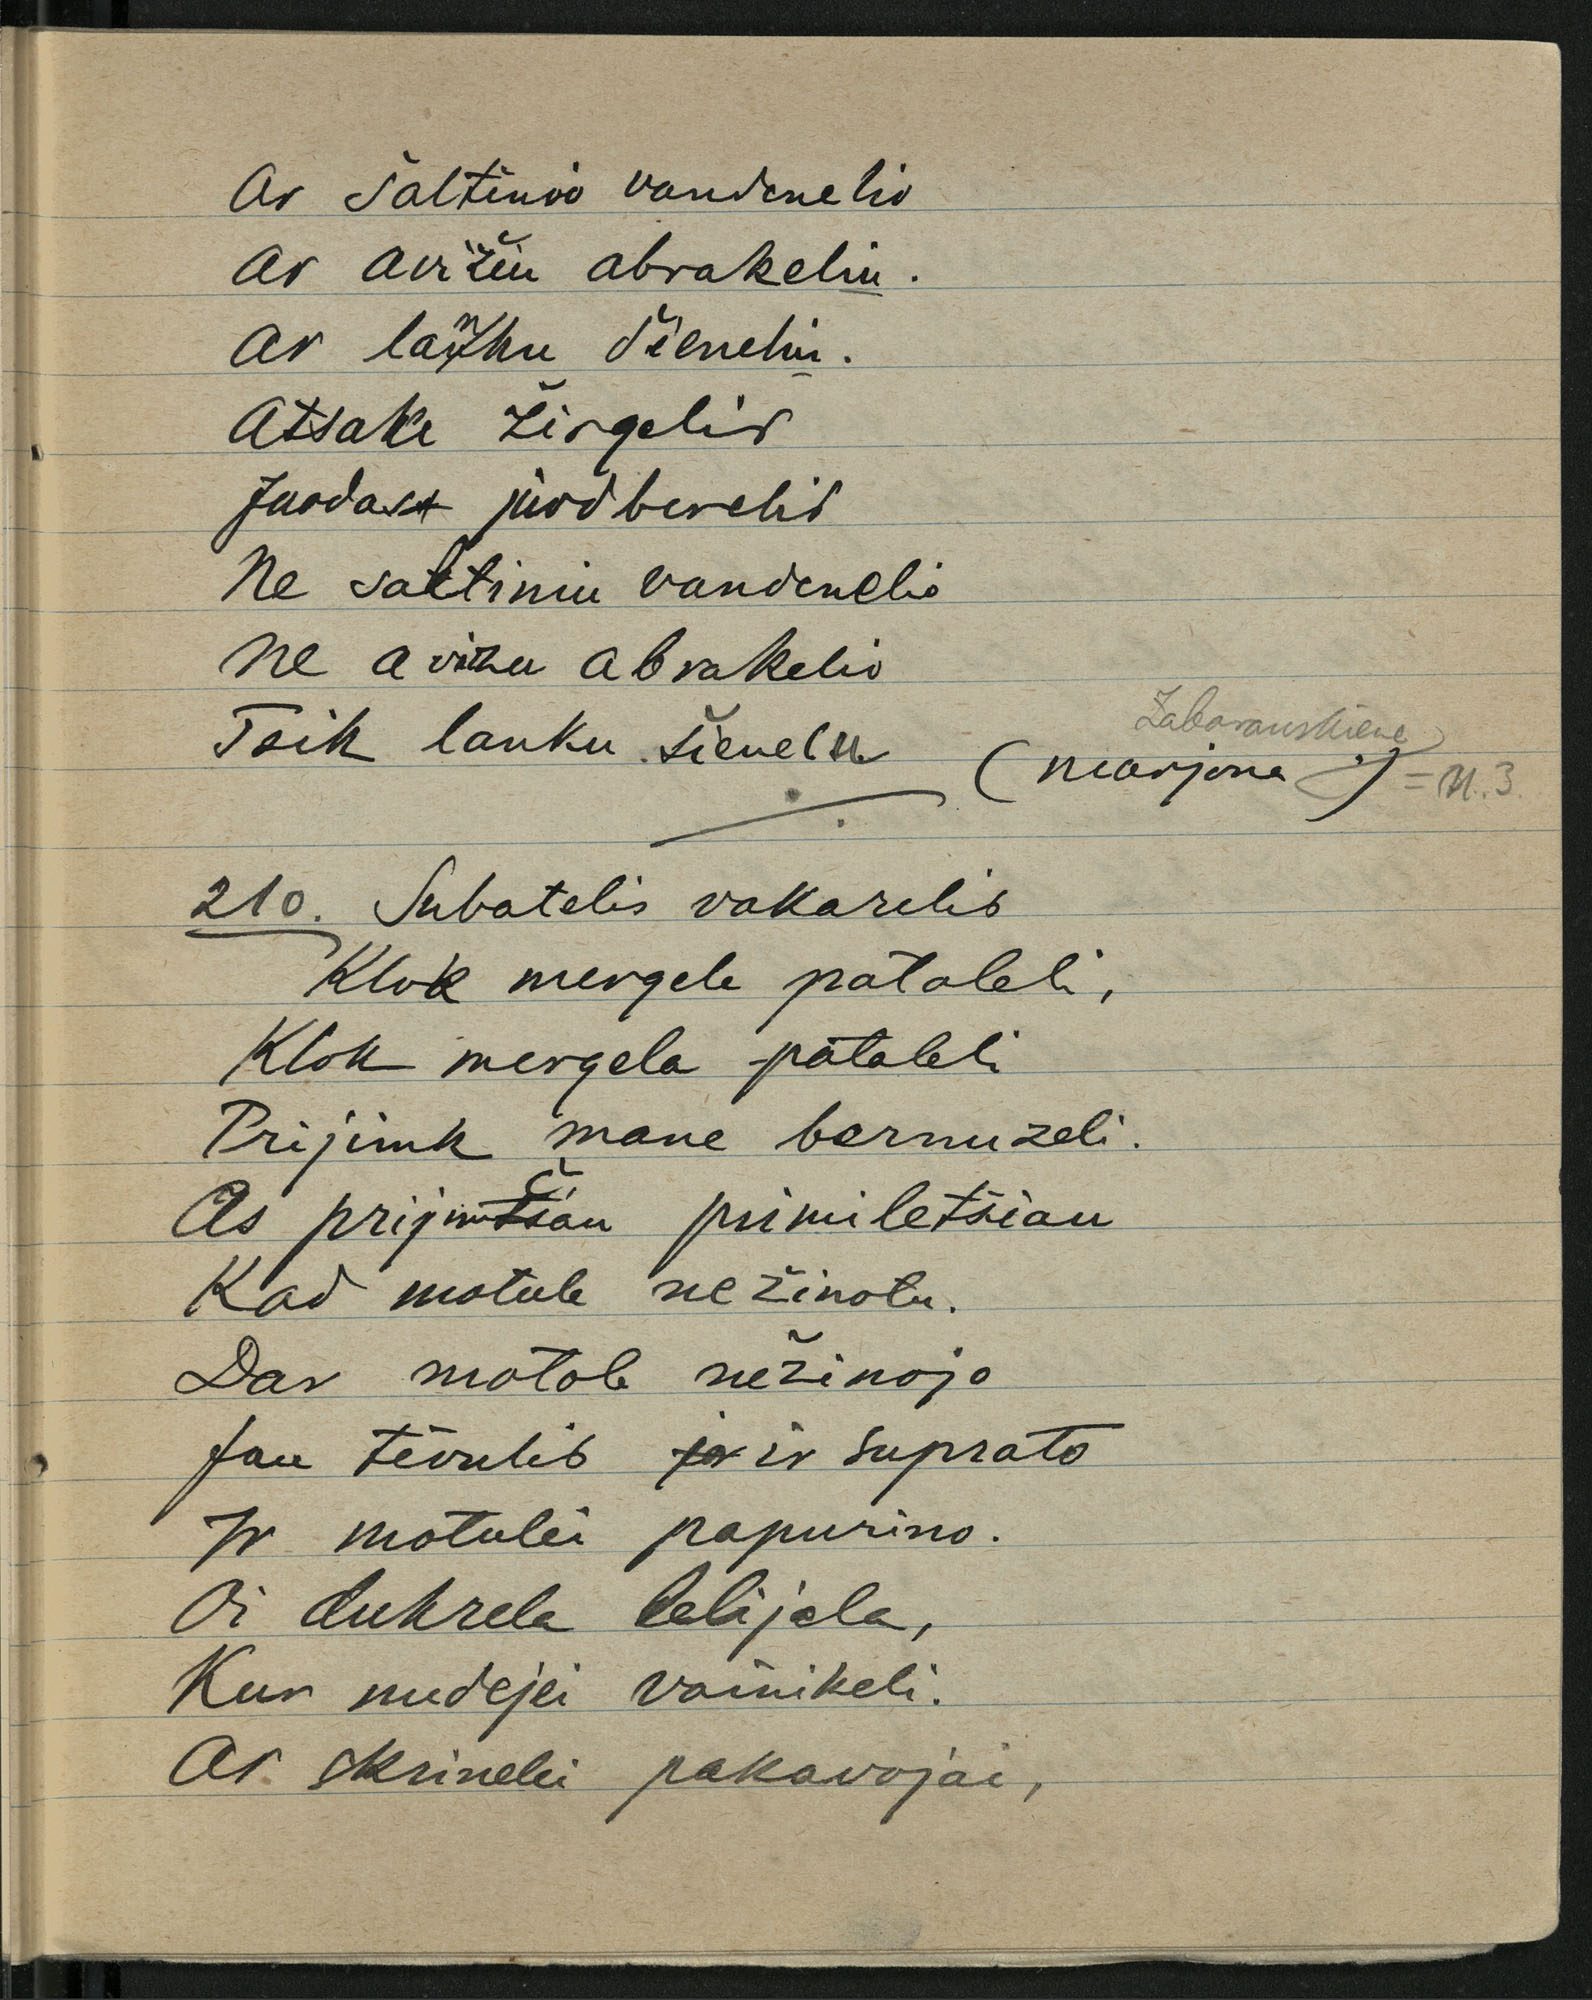 Ar šaltinio vandenelio
Ar avižiu abrakeliu.
Ar lanku šieneliu.
Atsake žirgelis
Juodas judberelis
Ne saltiniu vandenelio
Ne avižu abrakelio
Toik lanku šienelu
Zabarauskiene
(Marjona) = N. 3.
210. Subatelis vakarelis
Klok mergele pataleli,
Klok mergela pataleli
Prijimk mane bernuzeli.
As prijimčiau priimiletšiau
Kad motule nežinotu.
Dar motole nežinojo
Jau tėvulis ir suprato
Ir motulei papurino.
Oi dukrela lelijela,
Kur nudejei vainikeli.
Ar skrinelei pakavojai,